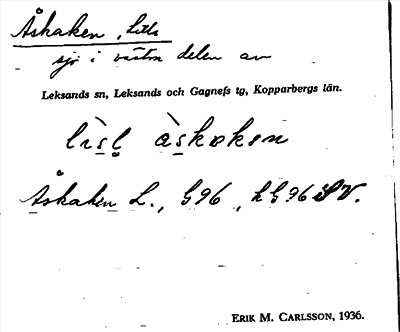 Åskaken, Lilla
sjö i västra delen av
Leksands sn, Leksands och Gagnefs tg, Kopparbergs län.
lìsḷ àskakən
Åskaken L., G96, hG96 SV.
ERIK M. CARLSSON, 1936.